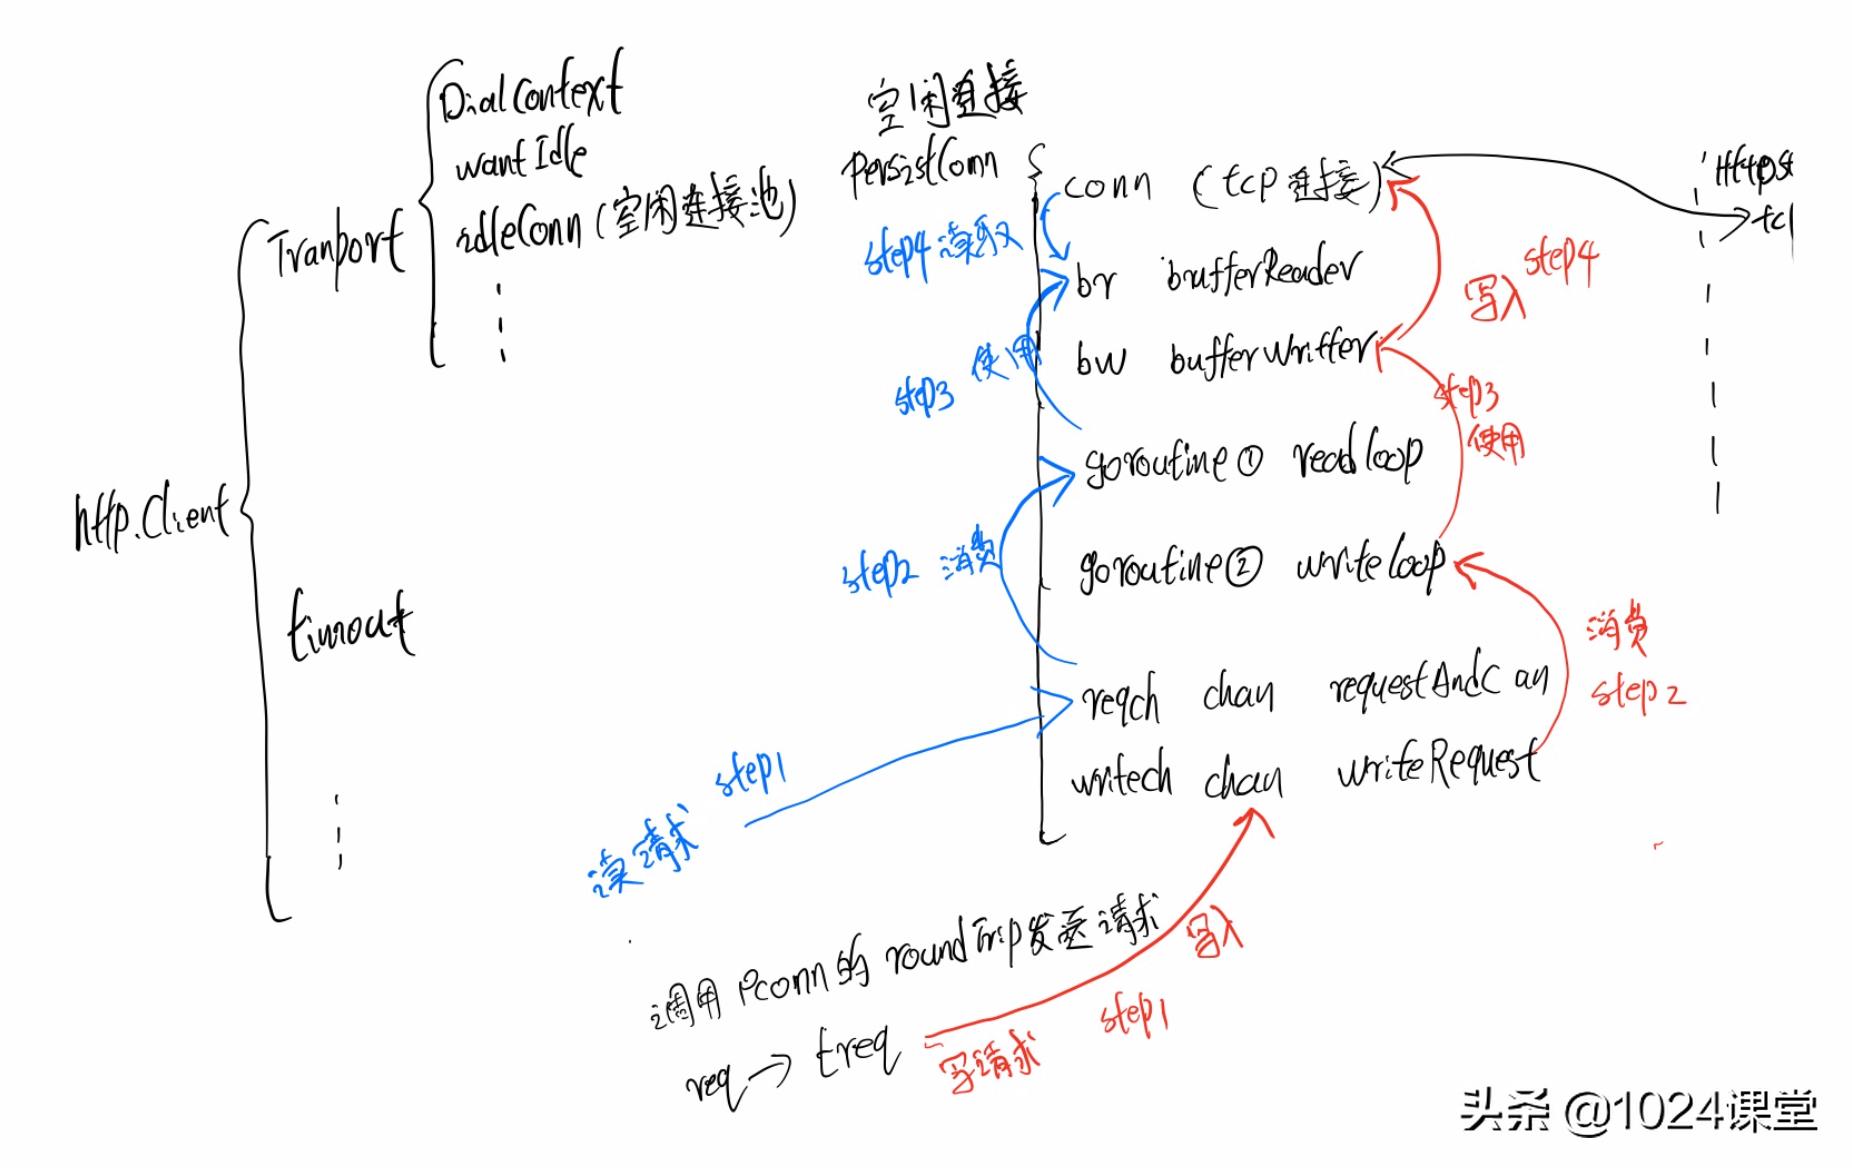 http.Client
Tranport
DialContext
wantIdle
idleConn (空闲连接池)
timout
空闲连接
PersistConn
conn (tcp 连接)
br bufferReader
bw bufferWritter
goroutine① readloop
goroutine② writeloop
reqch chan requestAndC an
writech chan writeRequest
step4 读取
step3 使用
step2 消费
step1
读请求
写入 step4
step3
使用
消费
step2
写入
step1
写请求
调用 Pconn的 roundTrip发送请求
req → treq
头条 @1024课堂